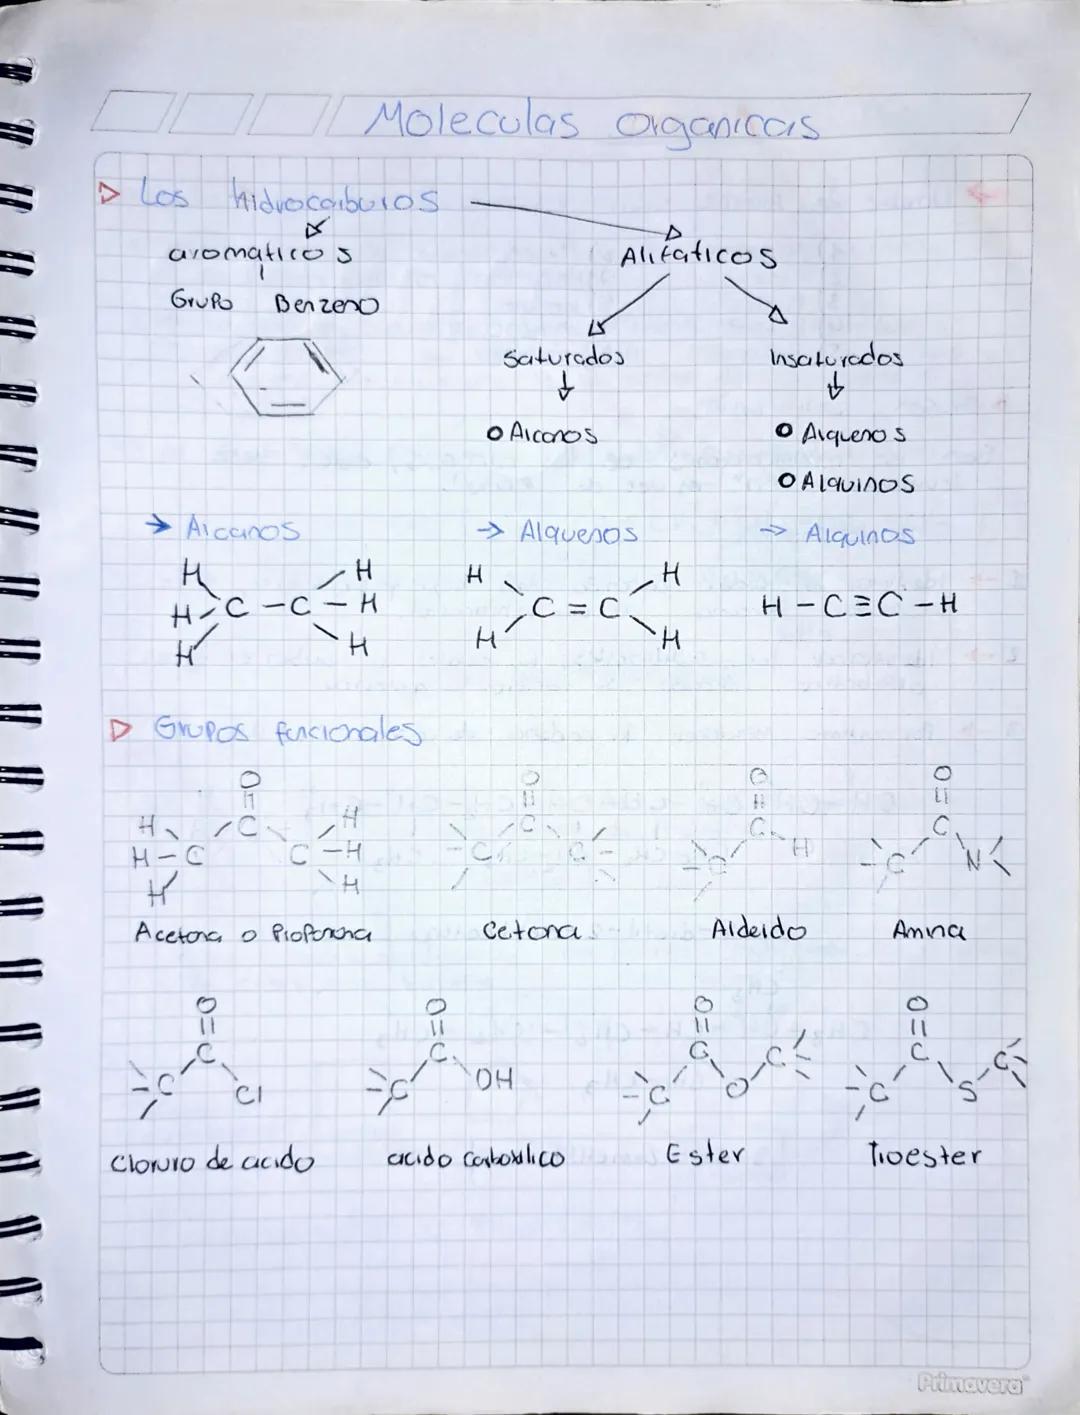 Moleculas organicas
Los hidrocarburos
aromaticos
Alifaticos
Grupo Benzeno
Saturados
Insaturados
Alcanos
Alquenos
Alquinos
Alcanos
Alquenos
Alquinos
H H H H
H C - C - H C = C H - C ≡ C - H
H H H H
Grupos funcionales
O O O O
H C H C C C
H - C C - H C C C H C N
H H
Acetona o Propanona Cetona Aldeido Amina
O O O O
C C C C C C
C Cl C OH C O C S
Cloruro de acido acido carboxilico Ester Tioester
Primavera